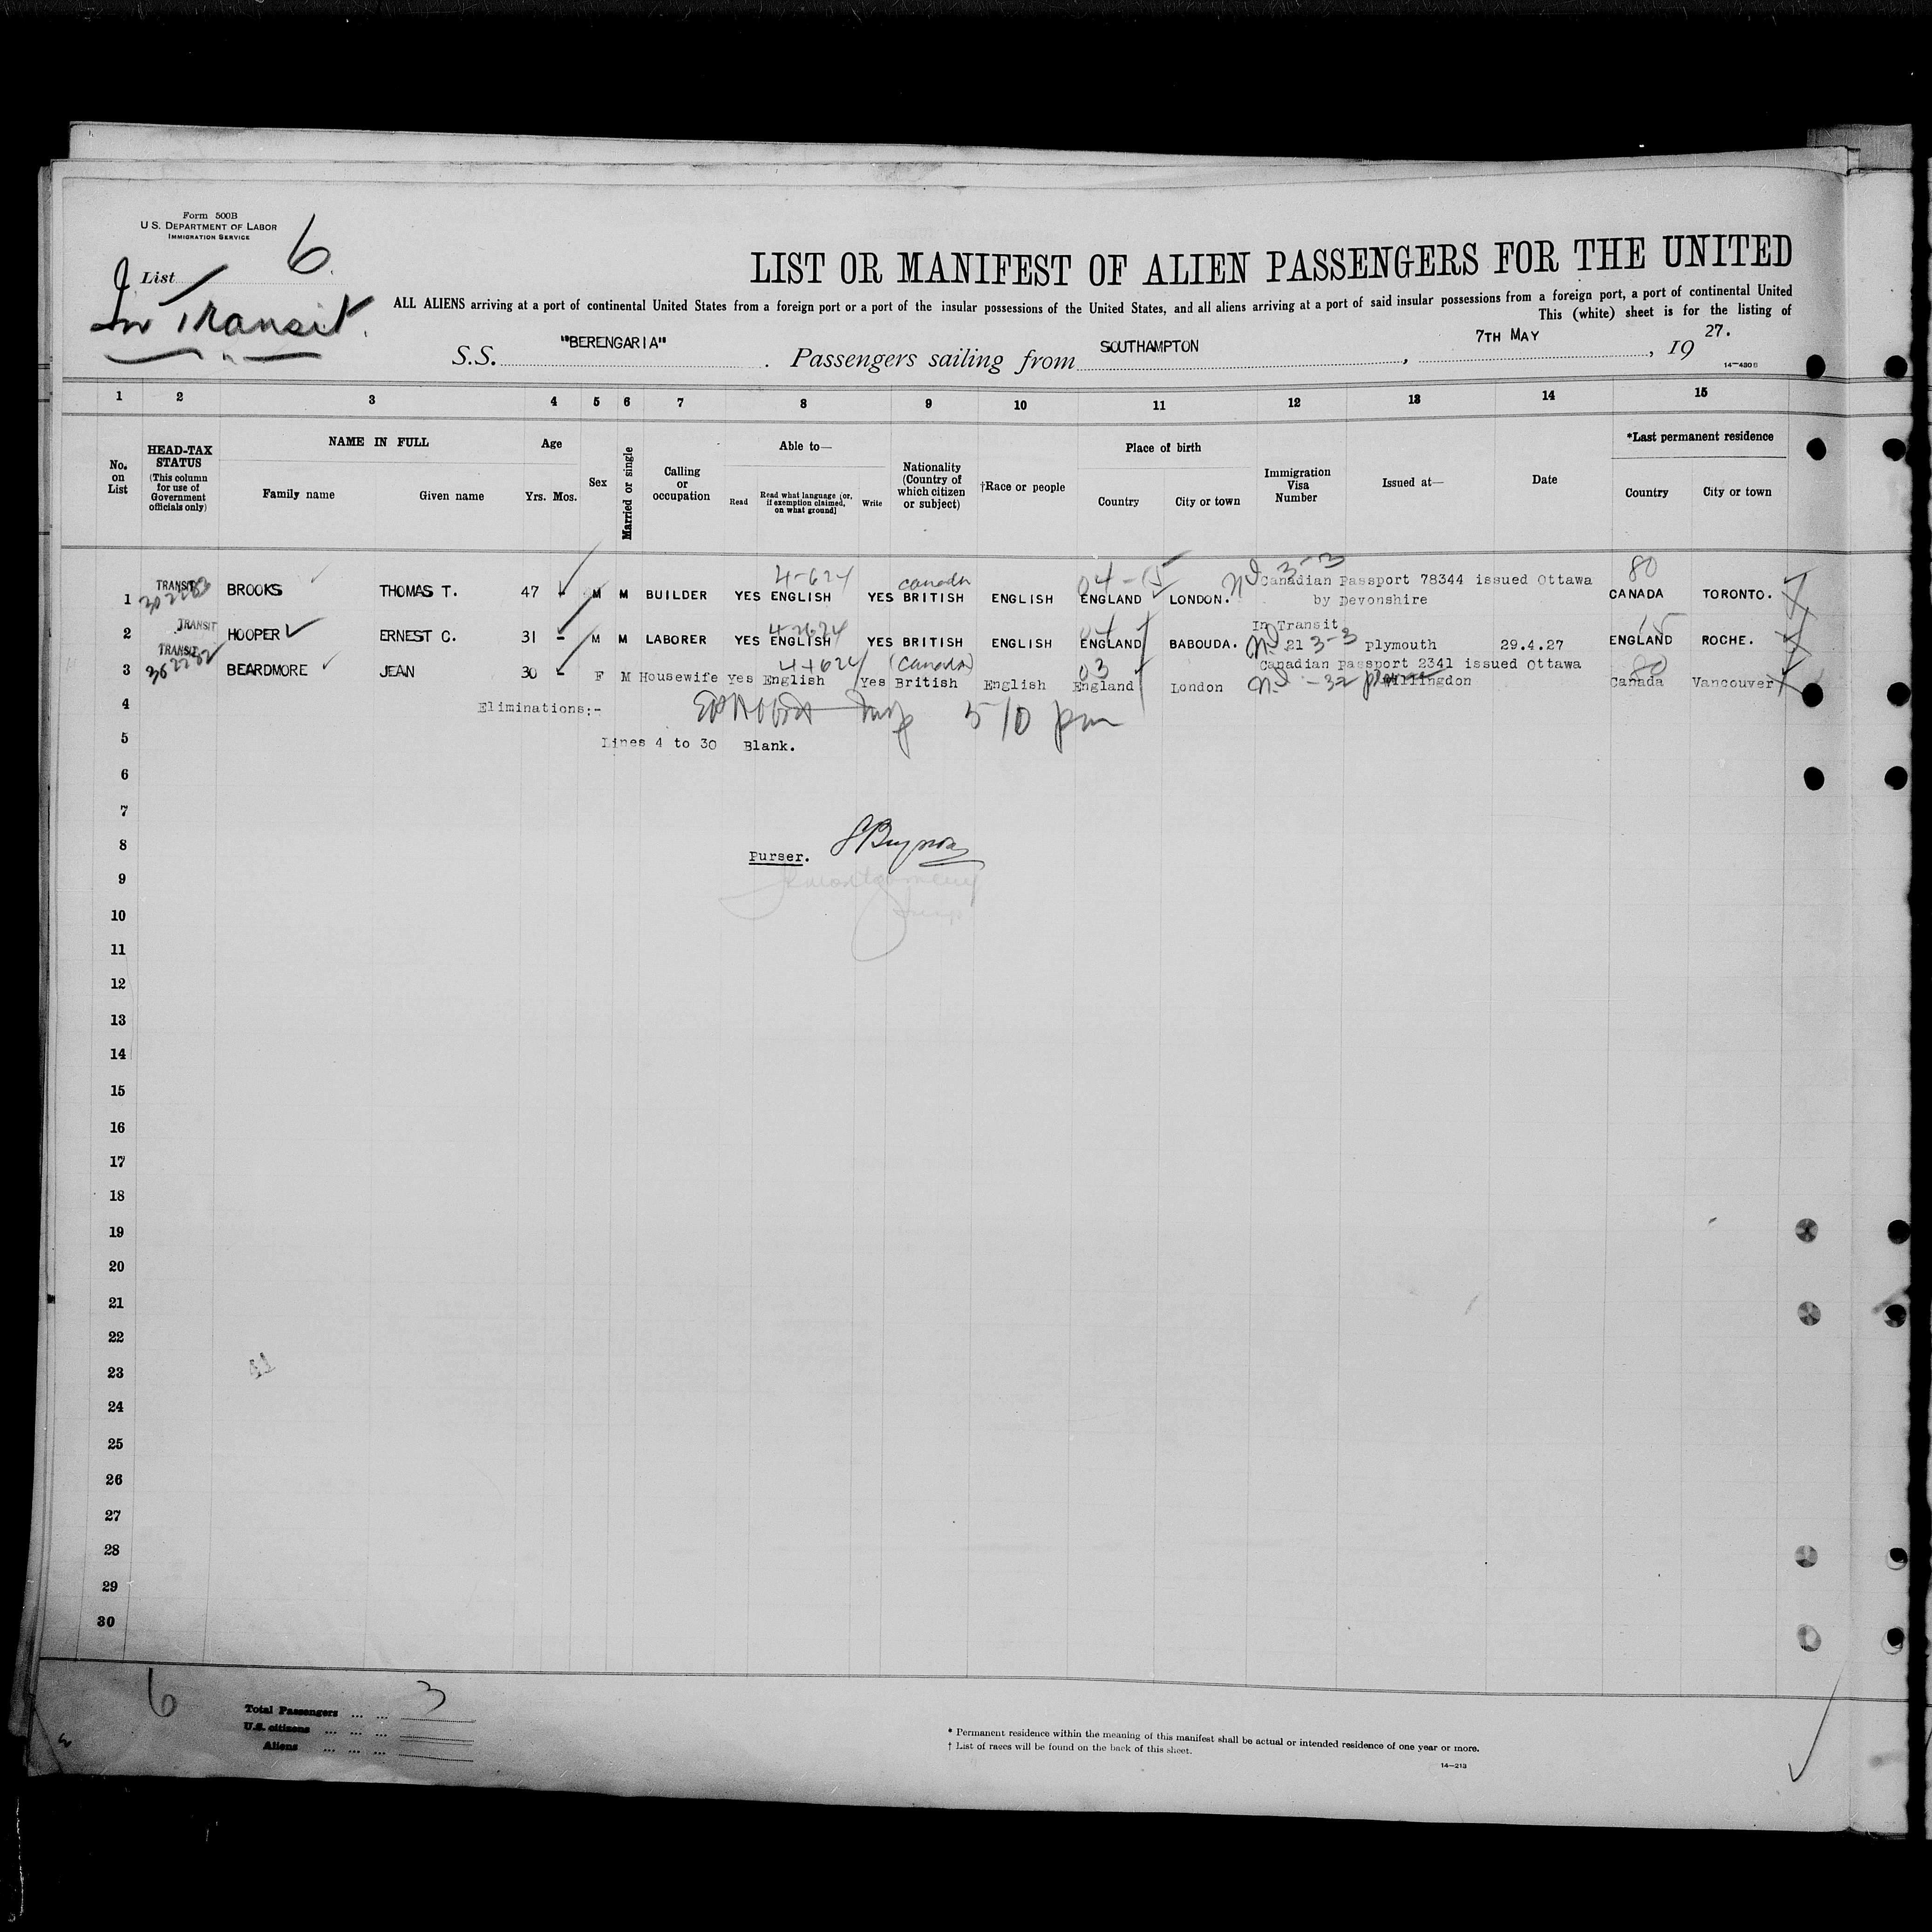 Form 500B
U.S. DEPARTMENT OF LABOR
IMMIGRATION SERVICE
List 6
In Transit.
LIST OR MANIFEST OF ALIEN PASSENGERS FOR THE UNITED
ALL ALIENS arriving at a port of continental United States from a foreign port or a port of the insular possessions of the United States, and all aliens arriving at a port of said insular possessions from a foreign port, a port of continental United
This (white) sheet is for the listing of
S.S. "BERENGARIA". Passengers sailing from SOUTHAMPTON, 7TH MAY, 19 27.
1 2 3 4 5 6 7 8 9 10 11 12 13 14 15
No. on List
HEAD-TAX STATUS (This column for use of Government officials only)
NAME IN FULL
Family name
Given name
Age
Yrs. Mos.
Sex
Married or single
Calling or occupation
Able to—
Read
Read what language [or, if exemption claimed, on what ground]
Write
Nationality (Country of which citizen or subject)
†Race or people
Place of birth
Country
City or town
Immigration Visa Number
Issued at—
Date
*Last permanent residence
Country
City or town
4-624 canada 04 3-3 80
TRANSIT Canadian Passport 78344 issued Ottawa
1 BROOKS THOMAS T. 47 - M M BUILDER YES ENGLISH YES BRITISH ENGLISH ENGLAND LONDON. by Devonshire CANADA TORONTO.
TRANSIT In Transit
2 HOOPER ERNEST C. 31 - M M LABORER YES ENGLISH YES BRITISH ENGLISH ENGLAND BABOUDA. 21 3-3 Plymouth 29.4.27 ENGLAND ROCHE.
TRANSIT (Canada) 03 Canadian Passport 2341 issued Ottawa 80
3 BEARDMORE JEAN 30 - F M Housewife Yes English Yes British English England London Willingdon Canada Vancouver
4 Eliminations:- 510 pm
5 Lines 4 to 30 Blank.
6
7
8 Purser.
9
10
11
12
13
14
15
16
17
18
19
20
21
22
23
24
25
26
27
28
29
30
6
Total Passengers ... ... 3
U.S. citizens ... ... ...
Aliens ... ... ...
* Permanent residence within the meaning of this manifest shall be actual or intended residence of one year or more.
† List of races will be found on the back of this sheet.
14—213